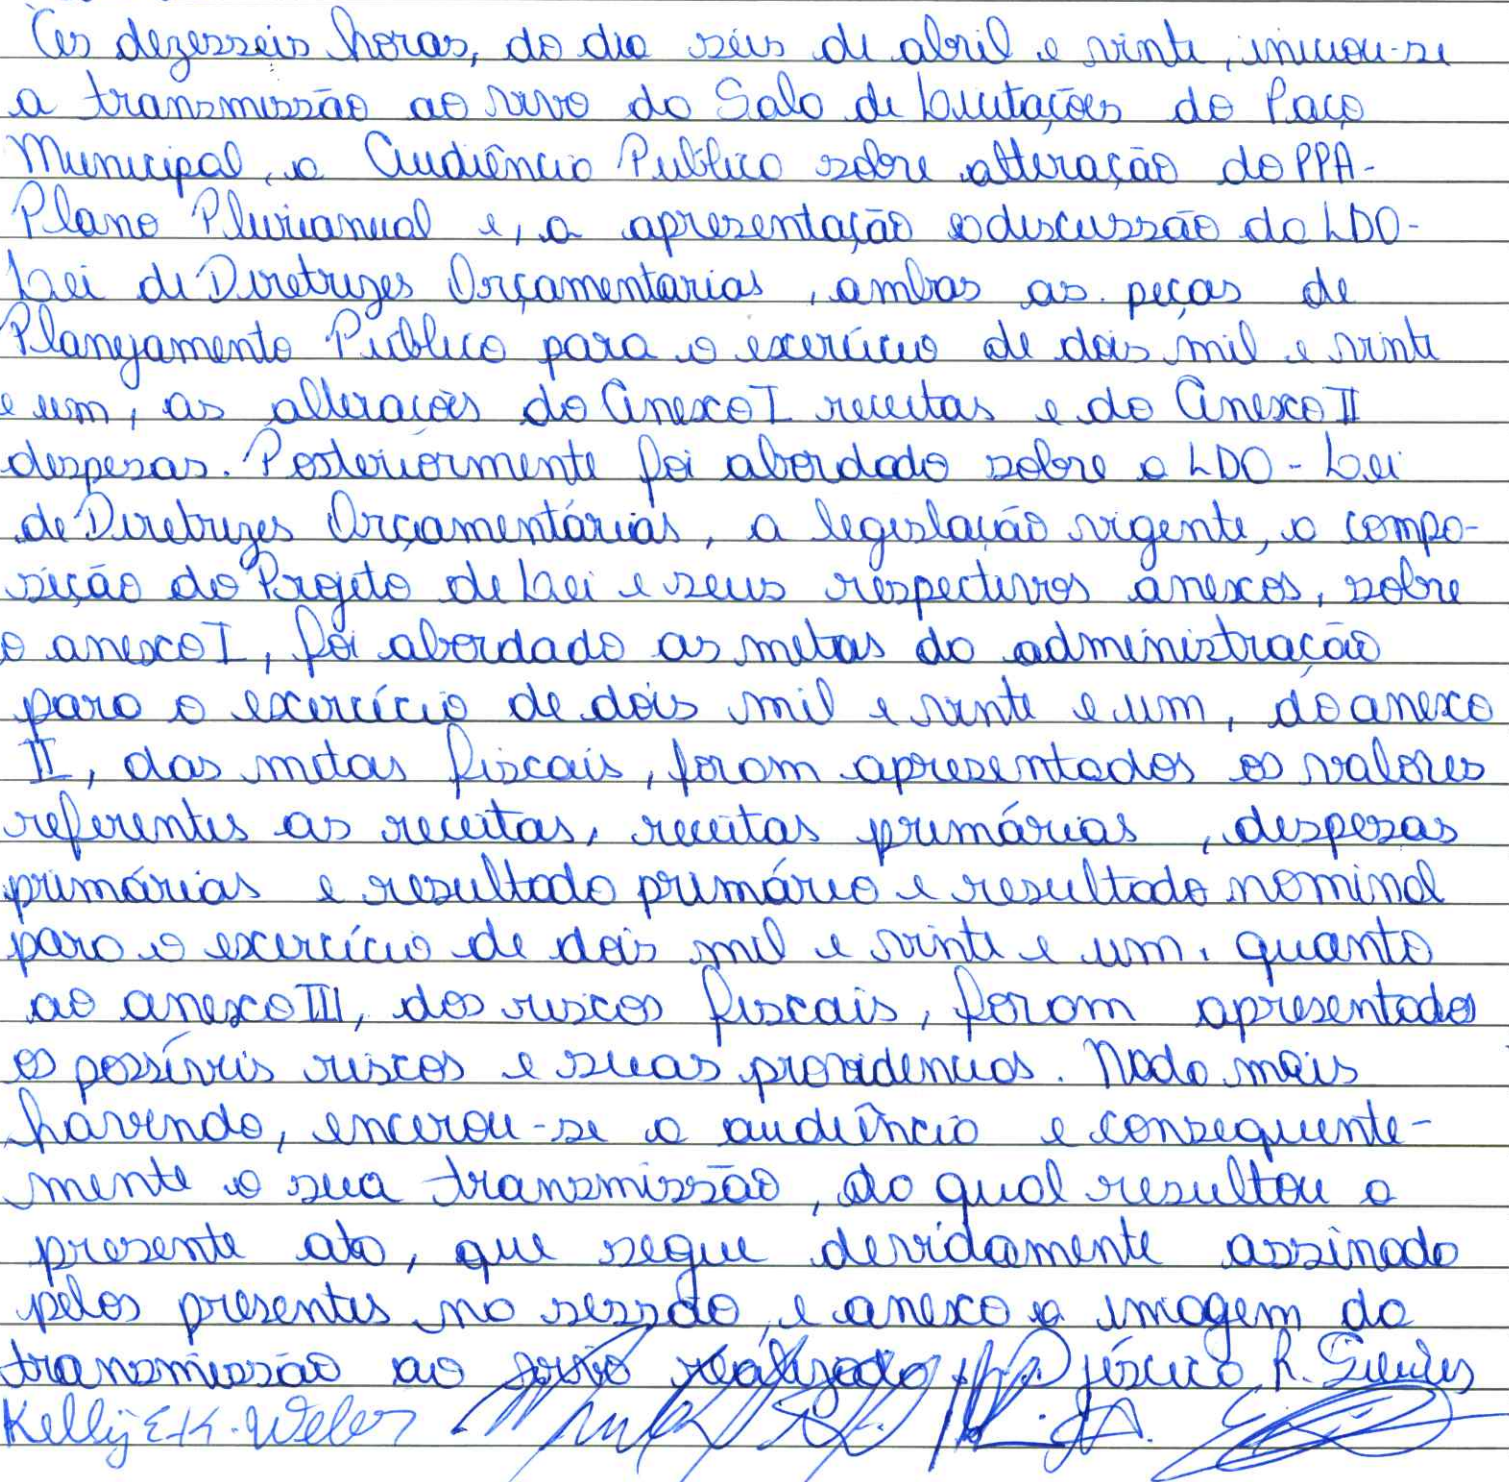 As dezesseis horas, do dia seis de abril e vinte, iniciou-se
a transmissão ao vivo da Sala de Licitações do Paço
Municipal, a Audiência Publica sobre alteração do PPA-
Plano Plurianual e, a apresentação e discussão da LDO-
Lei de Diretrizes Orçamentarias, ambas as peças de
Planejamento Público para o exercício de dois mil e vinte
e um, as alterações do Anexo I receitas e do Anexo II
despesas. Posteriormente foi abordado sobre a LDO - Lei
de Diretrizes Orçamentárias, a legislação vigente, a compo-
sição do Projeto de Lei e seus respectivos anexos, sobre
o anexo I, foi abordado as metas da administração
para o exercício de dois mil e vinte e um, do anexo
II, das metas fiscais, foram apresentados os valores
referentes as receitas, receitas primárias, despesas
primárias e resultado primário e resultado nominal
para o exercício de dois mil e vinte e um. quanto
ao anexo III, dos riscos fiscais, foram apresentados
os possíveis riscos e suas providencias. Nada mais
havendo, encerou-se a audiência e consequente-
mente a sua transmissão, da qual resultou a
presente ata, que segue devidamente assinada
pelos presentes na sessão, e anexo a imagem da
transmissão ao vivo realizada. Jéssica R.
Kelly E. K. Weber